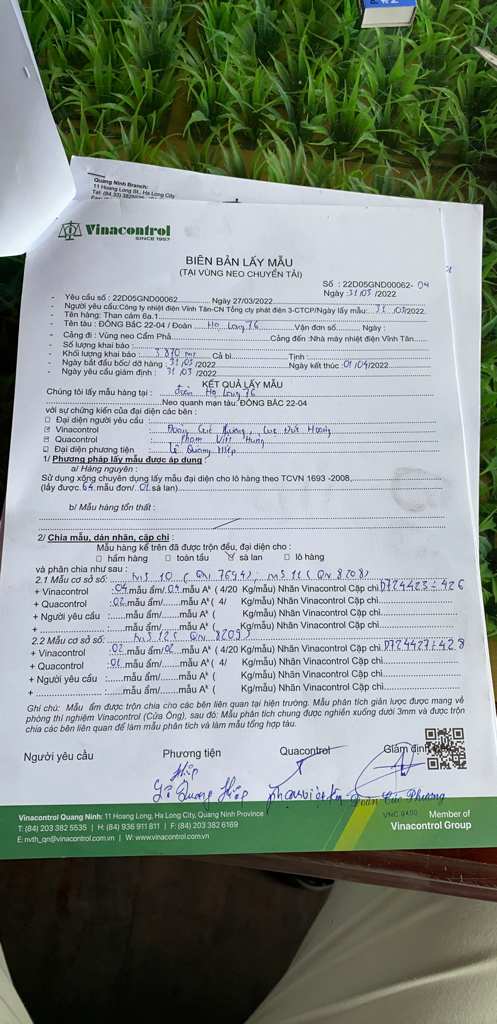 Quang Ninh Branch:
11 Hoang Long St., Ha Long City
Vinacontrol
SINCE 1957
BIÊN BẢN LẤY MẪU
(TẠI VÙNG NEO CHUYỂN TẢI)
Số : 22D05GND00062- 04
Ngày :31/03/2022
- Yêu cầu số : 22D05GND00062........... Ngày 27/03/2022
- Người yêu cầu:Công ty nhiệt điện Vĩnh Tân-CN Tổng cty phát điện 3-CTCP/Ngày lấy mẫu: 31 /03/2022
- Tên hàng: Than cám 6a.1
- Tên tàu : ĐÔNG BẮC 22-04 / Đoàn Hạ Long 76 Vận đơn số Ngày :
- Cảng đi : Vùng neo Cẩm Phả Cảng đến :Nhà máy nhiệt điện Vĩnh Tân
- Số lượng khai báo :
- Khối lượng khai báo : 3.870 mt Cả bì Tịnh :
- Ngày bắt đầu bốc/ dỡ hàng : 31/03/2022 Ngày kết thúc :01/04/2022
- Ngày yêu cầu giám định : 31/03/2022
KẾT QUẢ LẤY MẪU
Chúng tôi lấy mẫu hàng tại : đoàn Hạ Long 76
Neo quanh mạn tàu: ĐÔNG BẮC 22-04
với sự chứng kiến của đại diện các bên :
Đại diện người yêu cầu :
Vinacontrol : Đoàn Cúc Phương,
Quacontrol : Phạm Việt Hưng
Đại diện phương tiện : Lê Quang Hiệp
1/ Phương pháp lấy mẫu được áp dụng :
a/ Hàng nguyên :
Sử dụng xông chuyên dụng lấy mẫu đại diện cho lô hàng theo TCVN 1693 -2008,
(lấy được.64.mẫu đơn/..02 sà lan)
b/ Mẫu hàng tổn thất :
2/ Chia mẫu, dán nhãn, cặp chì :
Mẫu hàng kể trên đã được trộn đều, đại diện cho :
hầm hàng toàn tàu sà lan lô hàng
và phân chia như sau :
2.1 Mẫu cơ sở số: MS 10 ( QN 7694); MS 11 ( QN 8208)
+ Vinacontrol :.04.mẫu ẩm/.04.mẫu Aᵏ ( 4/20 Kg/mẫu) Nhãn Vinacontrol Cặp chì D724423÷426
+ Quacontrol :.02.mẫu ẩm/......mẫu Aᵏ ( 4/ Kg/mẫu) Nhãn Vinacontrol Cặp chì
+ Người yêu cầu :......mẫu ẩm/......mẫu Aᵏ ( Kg/mẫu) Nhãn Vinacontrol Cặp chì
+ ......mẫu ẩm/......mẫu Aᵏ ( Kg/mẫu) Nhãn Vinacontrol Cặp chì
2.2 Mẫu cơ sở số: MS 12 ( QN 8209)
+ Vinacontrol :.02.mẫu ẩm/02.mẫu Aᵏ ( 4/20 Kg/mẫu) Nhãn Vinacontrol Cặp chì D724427÷428
+ Quacontrol :.01.mẫu ẩm/......mẫu Aᵏ ( 4/ Kg/mẫu) Nhãn Vinacontrol Cặp chì
+ Người yêu cầu :......mẫu ẩm/......mẫu Aᵏ ( Kg/mẫu) Nhãn Vinacontrol Cặp chì
+ ......mẫu ẩm/......mẫu Aᵏ ( Kg/mẫu) Nhãn Vinacontrol Cặp chì
Ghi chú: Mẫu ẩm được trộn chia cho các bên liên quan tại hiện trường. Mẫu phân tích giản lược được mang về
phòng thí nghiệm Vinacontrol (Cửa Ông), sau đó: Mẫu phân tích chung được nghiền xuống dưới 3mm và được trộn
chia các bên liên quan để làm mẫu phân tích và làm mẫu tổng hợp tàu.
Người yêu cầu Phương tiện Quacontrol Giám định
Hiệp
Lê Quang Hiệp Phạm Việt Hưng Đoàn Cúc Phương
VNC 0400
Vinacontrol Quang Ninh: 11 Hoang Long, Ha Long City, Quang Ninh Province
T: (84) 203 382 5535 | H: (84) 936 911 811 | F: (84) 203 382 6169
E: nvth_qn@vinacontrol.com.vn | W: www.vinacontrol.com.vn
Member of
Vinacontrol Group